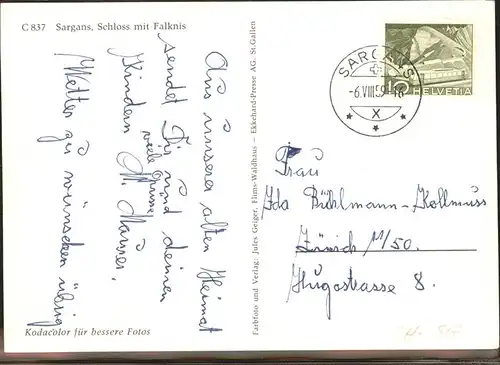 C 837 Sargans, Schloss mit Falknis
Aus unserer alten Heimat
sendet Dir und deinen
viele Grüsse
Kindern M. Maurer.
Wetter zu wünschen übrig
Kodacolor für bessere Fotos
Farbfoto und Verlag: Jules Geiger, Flims-Waldhaus – Ekkehard-Presse AG. St. Gallen
SARGANS
-6.VIII.59-18
X
10 HELVETIA
Frau
Ida Bühlmann-Kollmuss
Zürich 11/50.
Hugostrasse 8.